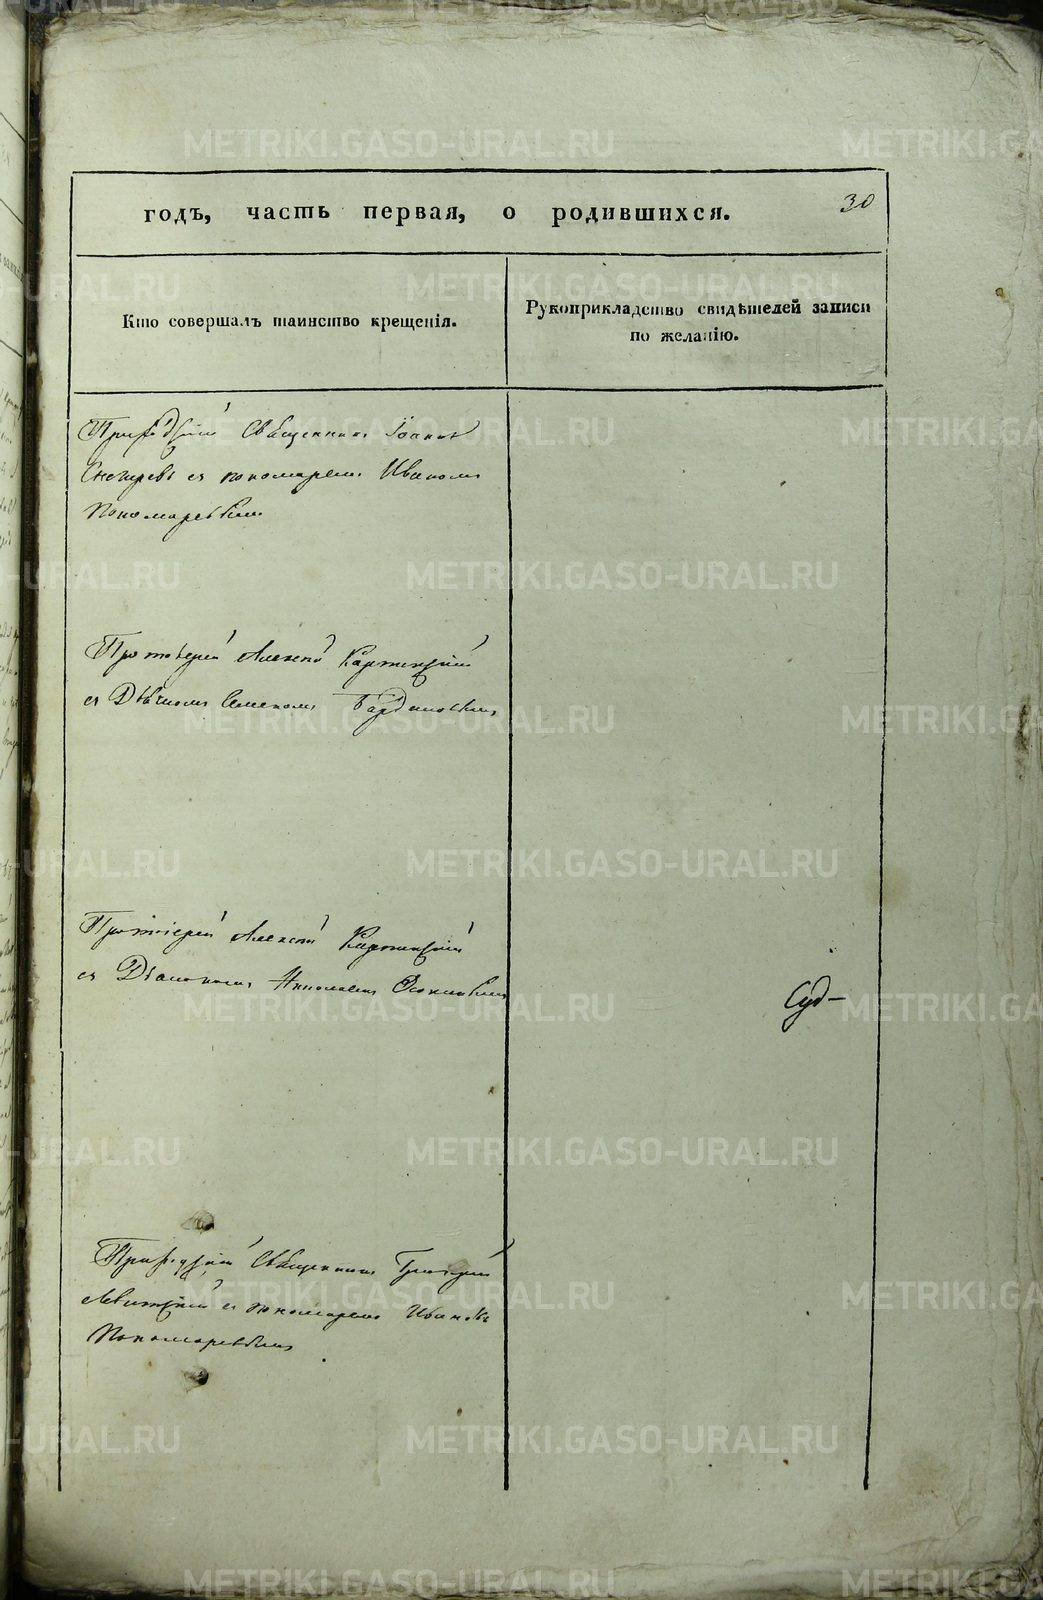 годъ, часть первая, о родившихся.
30
Кто совершалъ таинство крещенія.
Рукоприкладство свидѣтелей записи
по желанію.
Приходскій Священникъ Іоаннъ
Снегиревъ съ пономаремъ Иваномъ
Пономаревымъ
Протоіерей Алексѣй Карпинскій
съ Дьячкомъ Семеномъ
Протоіерей Алексѣй Карпинскій
съ Діакономъ Николаемъ
Суд-
Приходскій Священникъ Григорій
съ пономаремъ Иваномъ
Пономаревымъ
METRIKI.GASO-URAL.RU